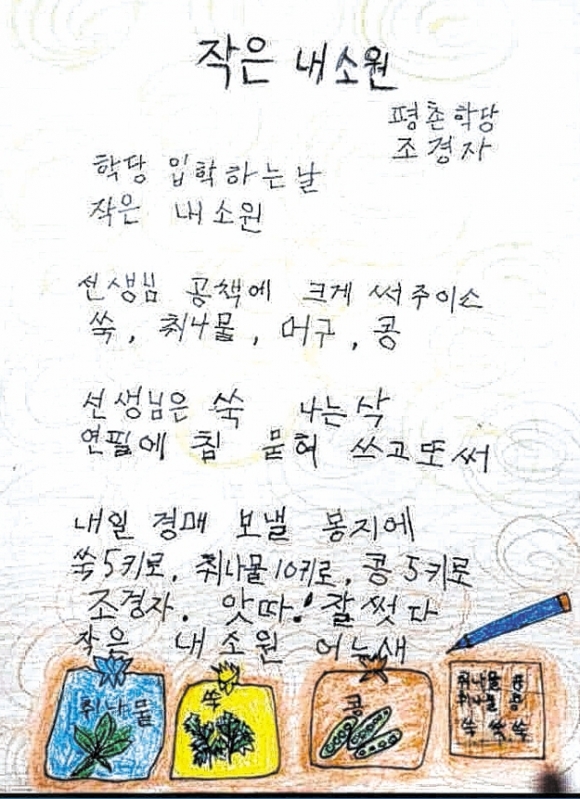 작은 내 소원
평촌학당
조경자
학당 입학하는 날
작은 내 소원
선생님 공책에 크게 써주이소
쑥, 취나물, 머구, 콩
선생님은 쑥 나는 삭
연필에 침 묻혀 쓰고 또 써
내일 경매 보낼 봉지에
쑥 5키로, 취나물 10키로, 콩 5키로
조경자. 앗따! 잘 썻다
작은 내 소원 어느새
취나물
쑥
콩
취나물 콩
취나물 콩
쑥 쑥 쑥